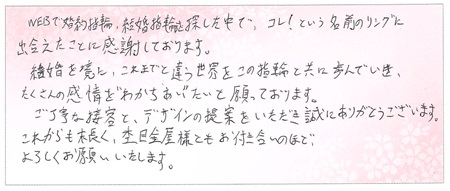 WEBで婚約指輪、結婚指輪を探した中で、コレ!という名前のリングに
出会えたことに感謝しております。
結婚を境に、これまでと違う世界をこの指輪と共に歩んでいき、
たくさんの感情をわかちあいたいと願っております。
ご丁寧な接客と、デザインの提案をいただき誠にありがとうございます。
これからも末長く、杢目金屋様ともお付き合いのほどで
よろしくお願いいたします。